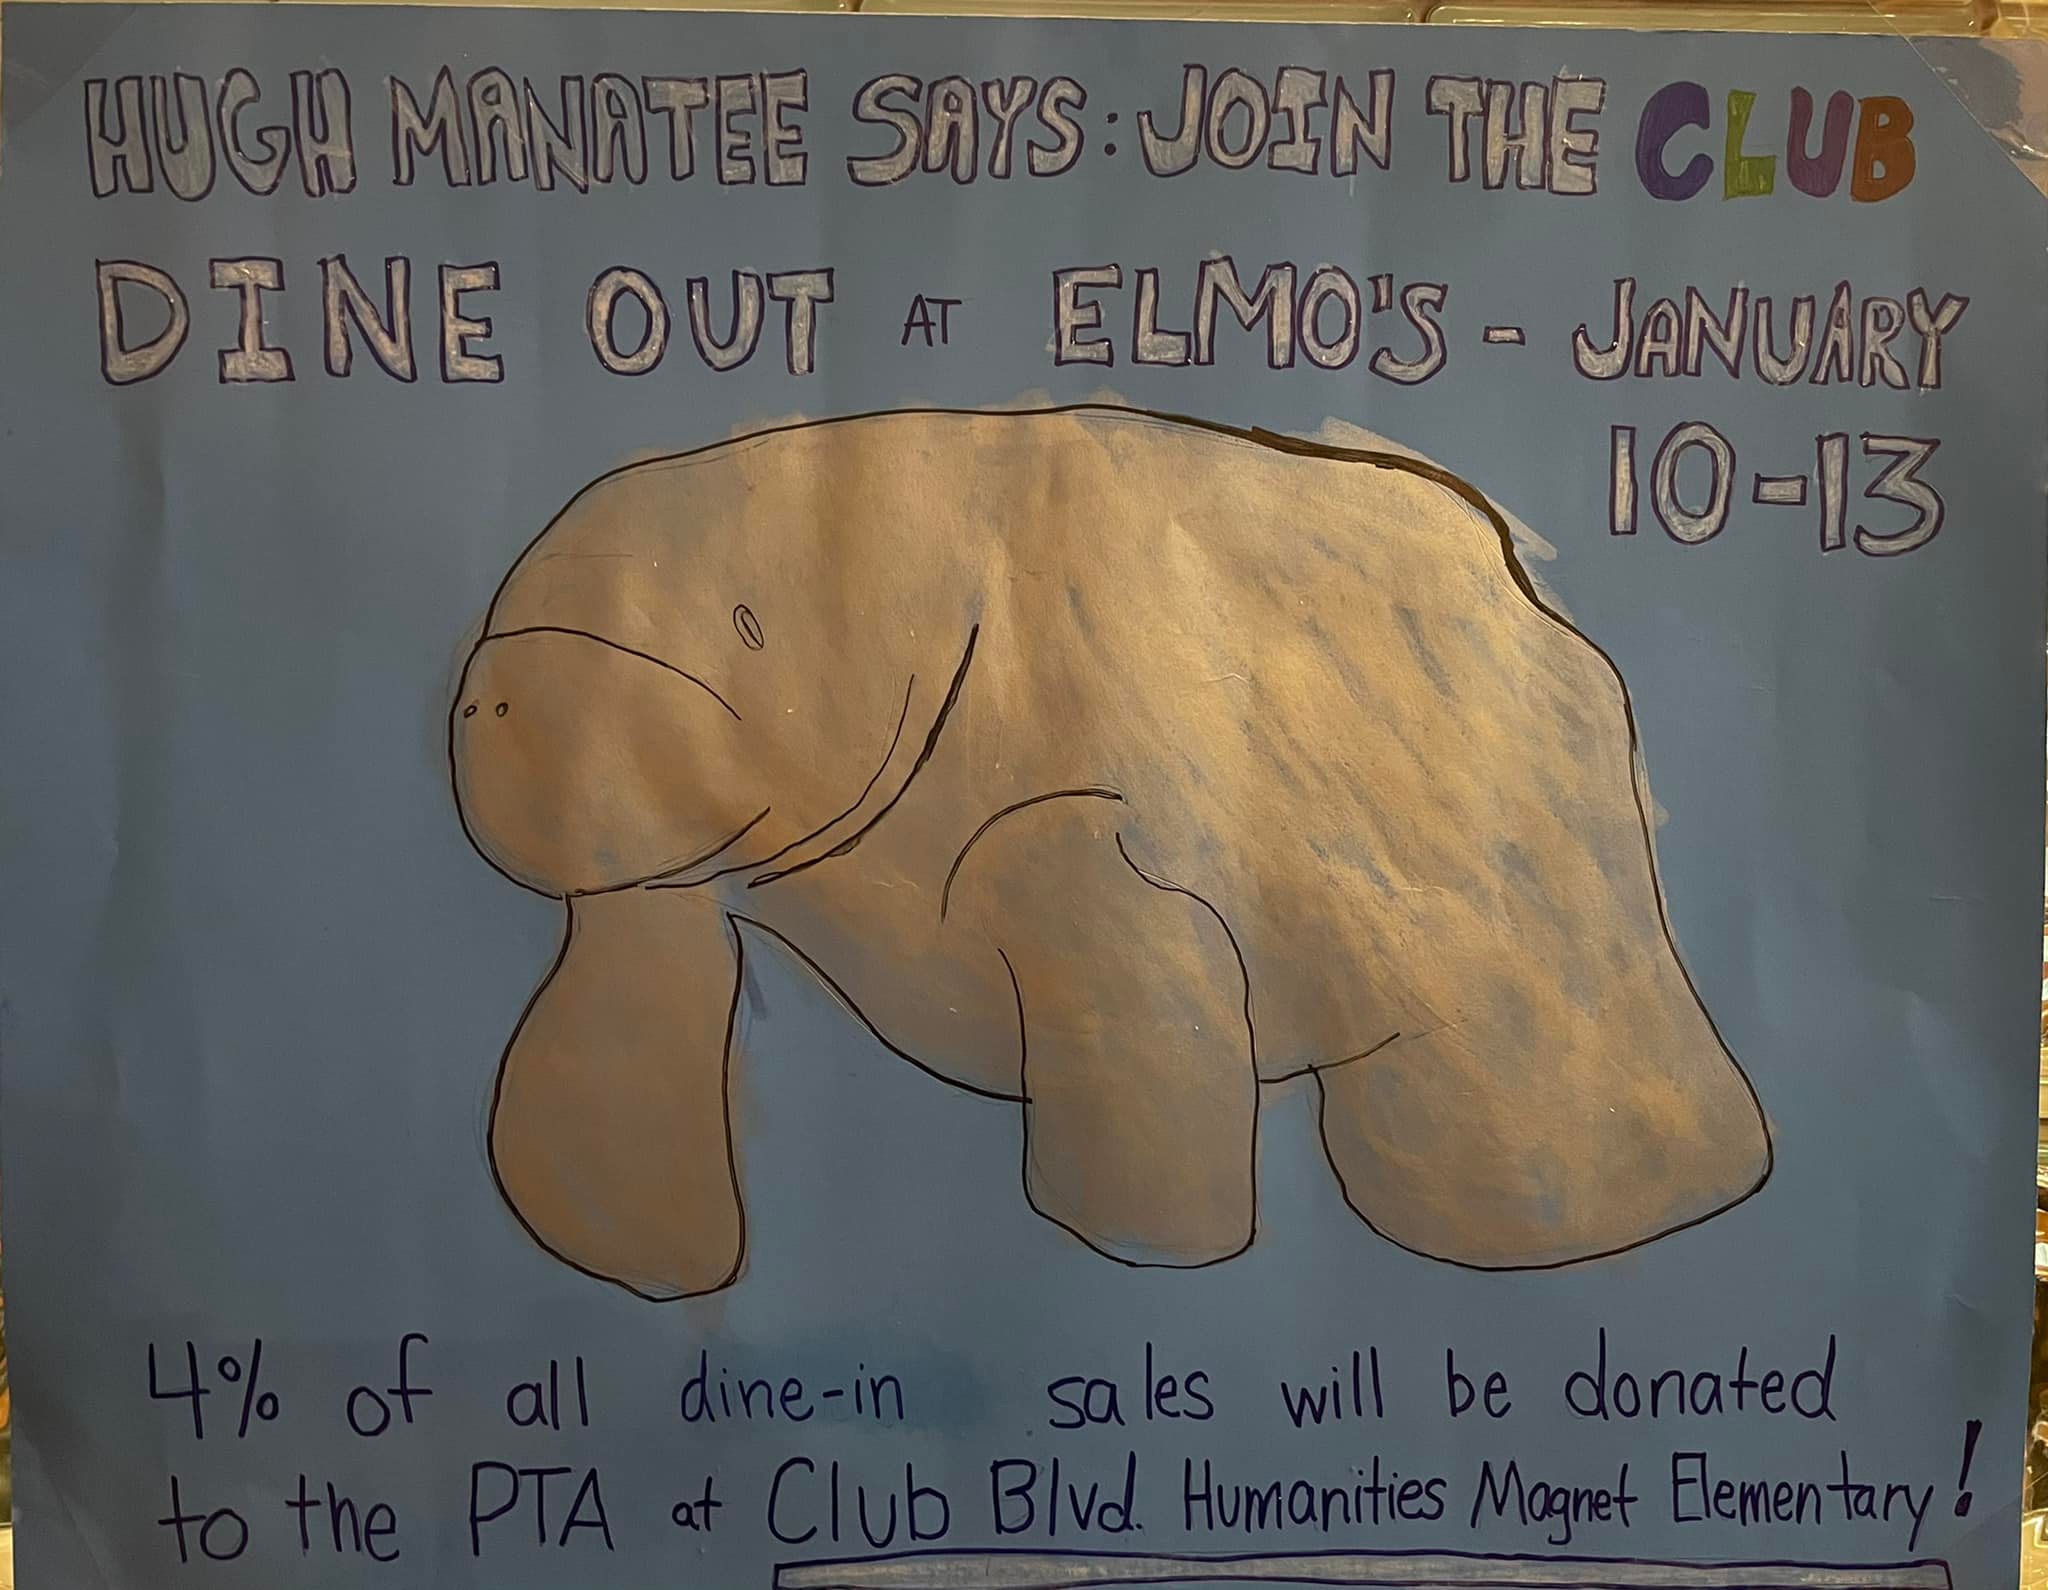 HUGH MANATEE SAYS: JOIN THE CLUB
DINE OUT AT ELMO'S - JANUARY
10-13
4% of all dine-in sales will be donated
to the PTA at Club Blvd. Humanities Magnet Elementary!